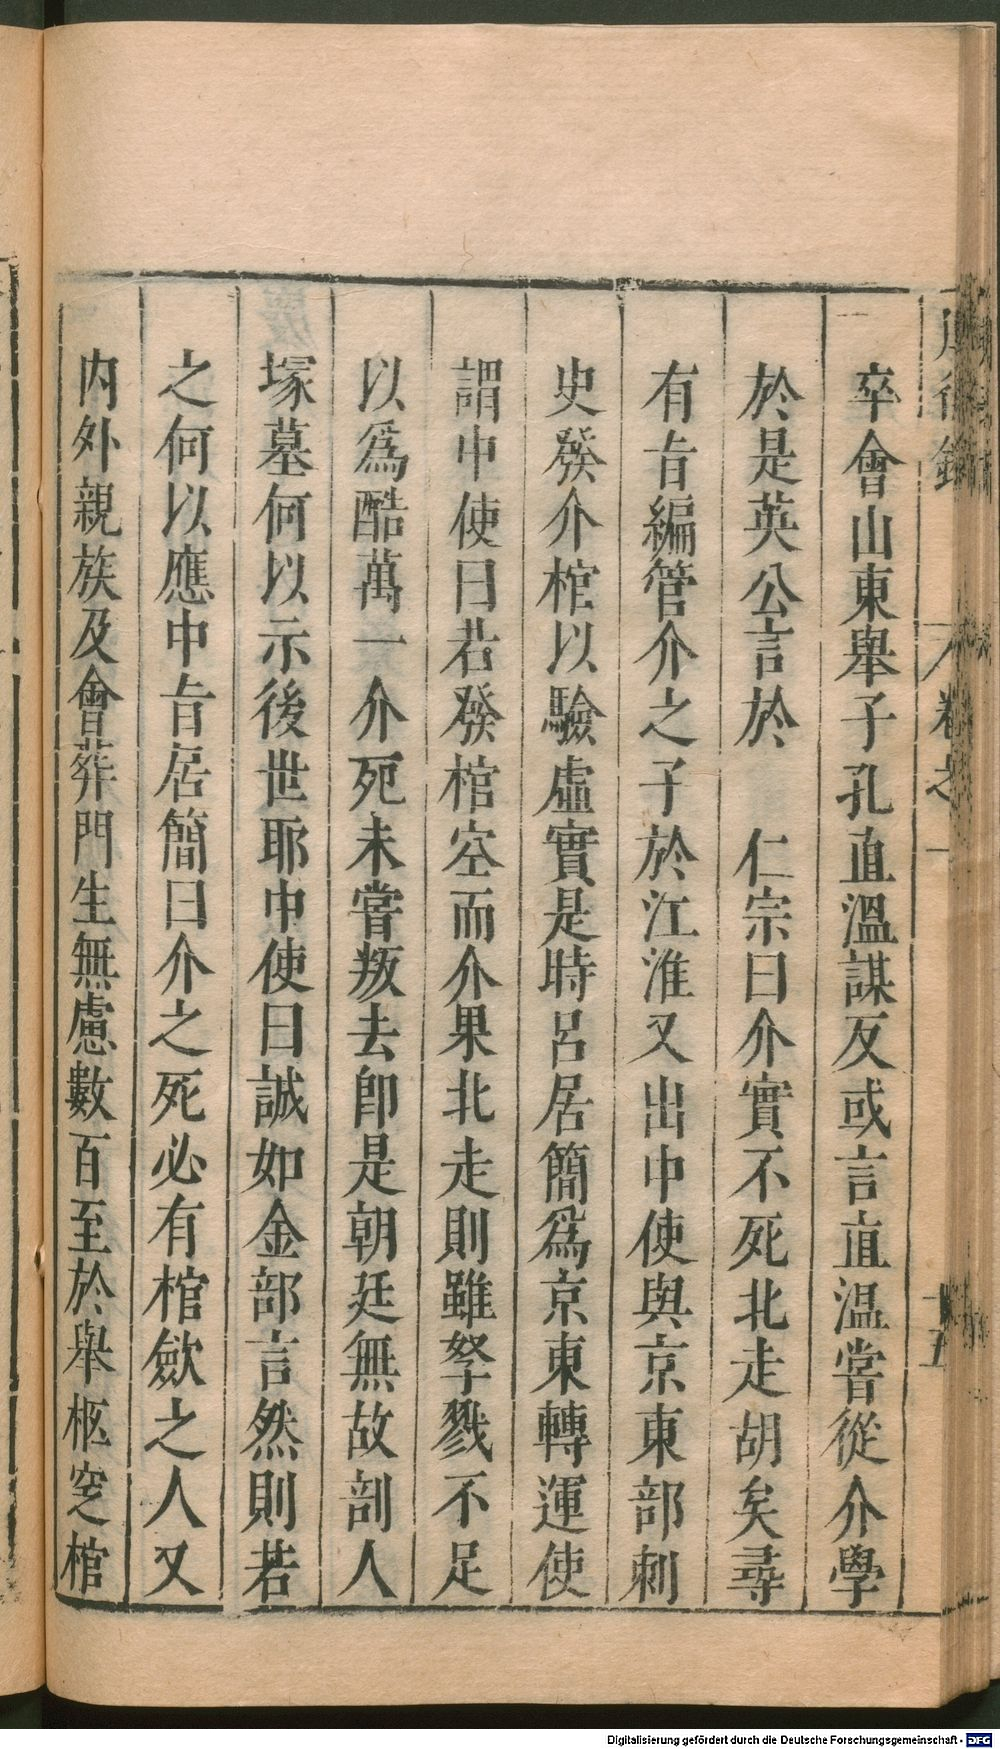 卒會山東舉子孔直溫謀反或言直溫嘗從介學
於是英公言於　仁宗曰介實不死北走胡矣尋
有旨編管介之子於江淮又出中使與京東部刺
史發介棺以驗虛實是時呂居簡爲京東轉運使
謂中使曰若發棺空而介果北走則雖孥戮不足
以爲酷萬一介死未嘗叛去即是朝廷無故剖人
塚墓何以示後世耶中使曰誠如金部言然則若
之何以應中旨居簡曰介之死必有棺歛之人又
內外親族及會葬門生無慮數百至於舉柩窆棺
卷之一
十五
Digitalisierung gefördert durch die Deutsche Forschungsgemeinschaft - DFG